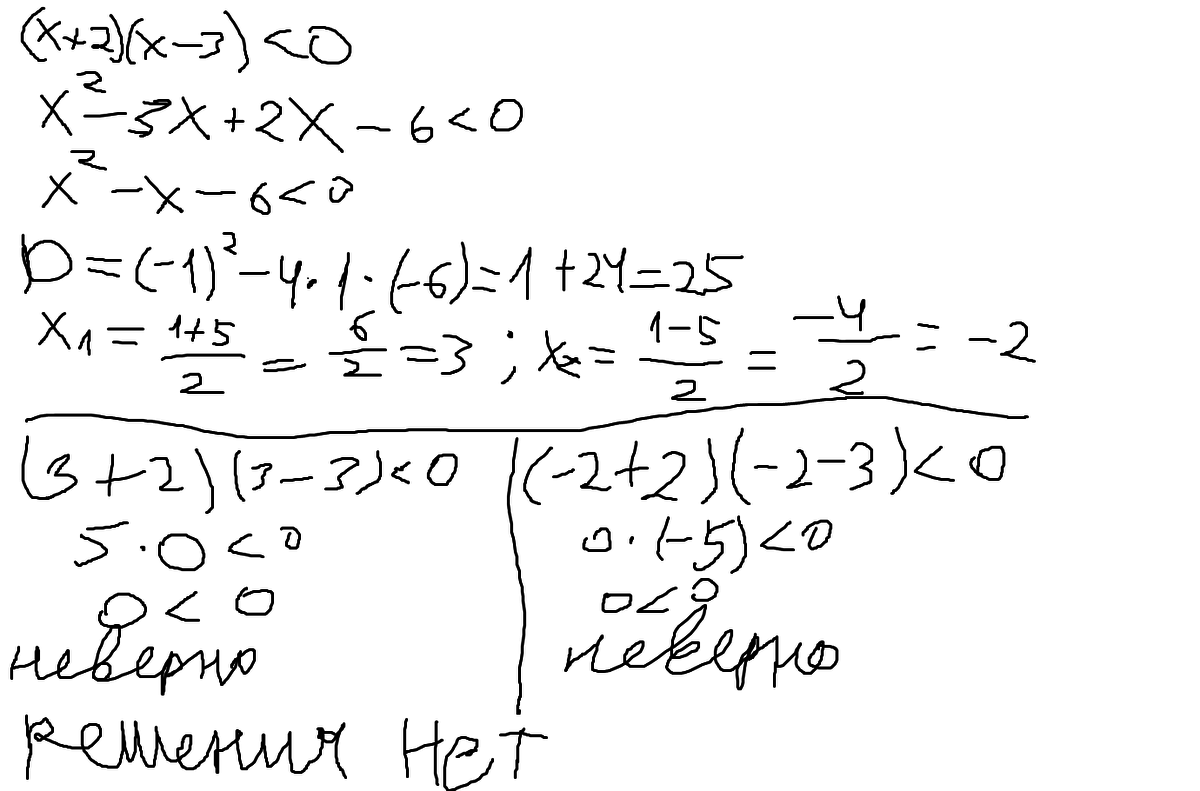 (x+2)(x-3)<0
x²-3x+2x-6<0
x²-x-6<0
D=(-1)²-4·1·(-6)=1+24=25
x₁=(1+5)/2=6/2=3; x₂=(1-5)/2=(-4)/2=-2
(3+2)(3-3)<0
5·0<0
0<0
неверно
(-2+2)(-2-3)<0
0·(-5)<0
0<0
неверно
решения нет